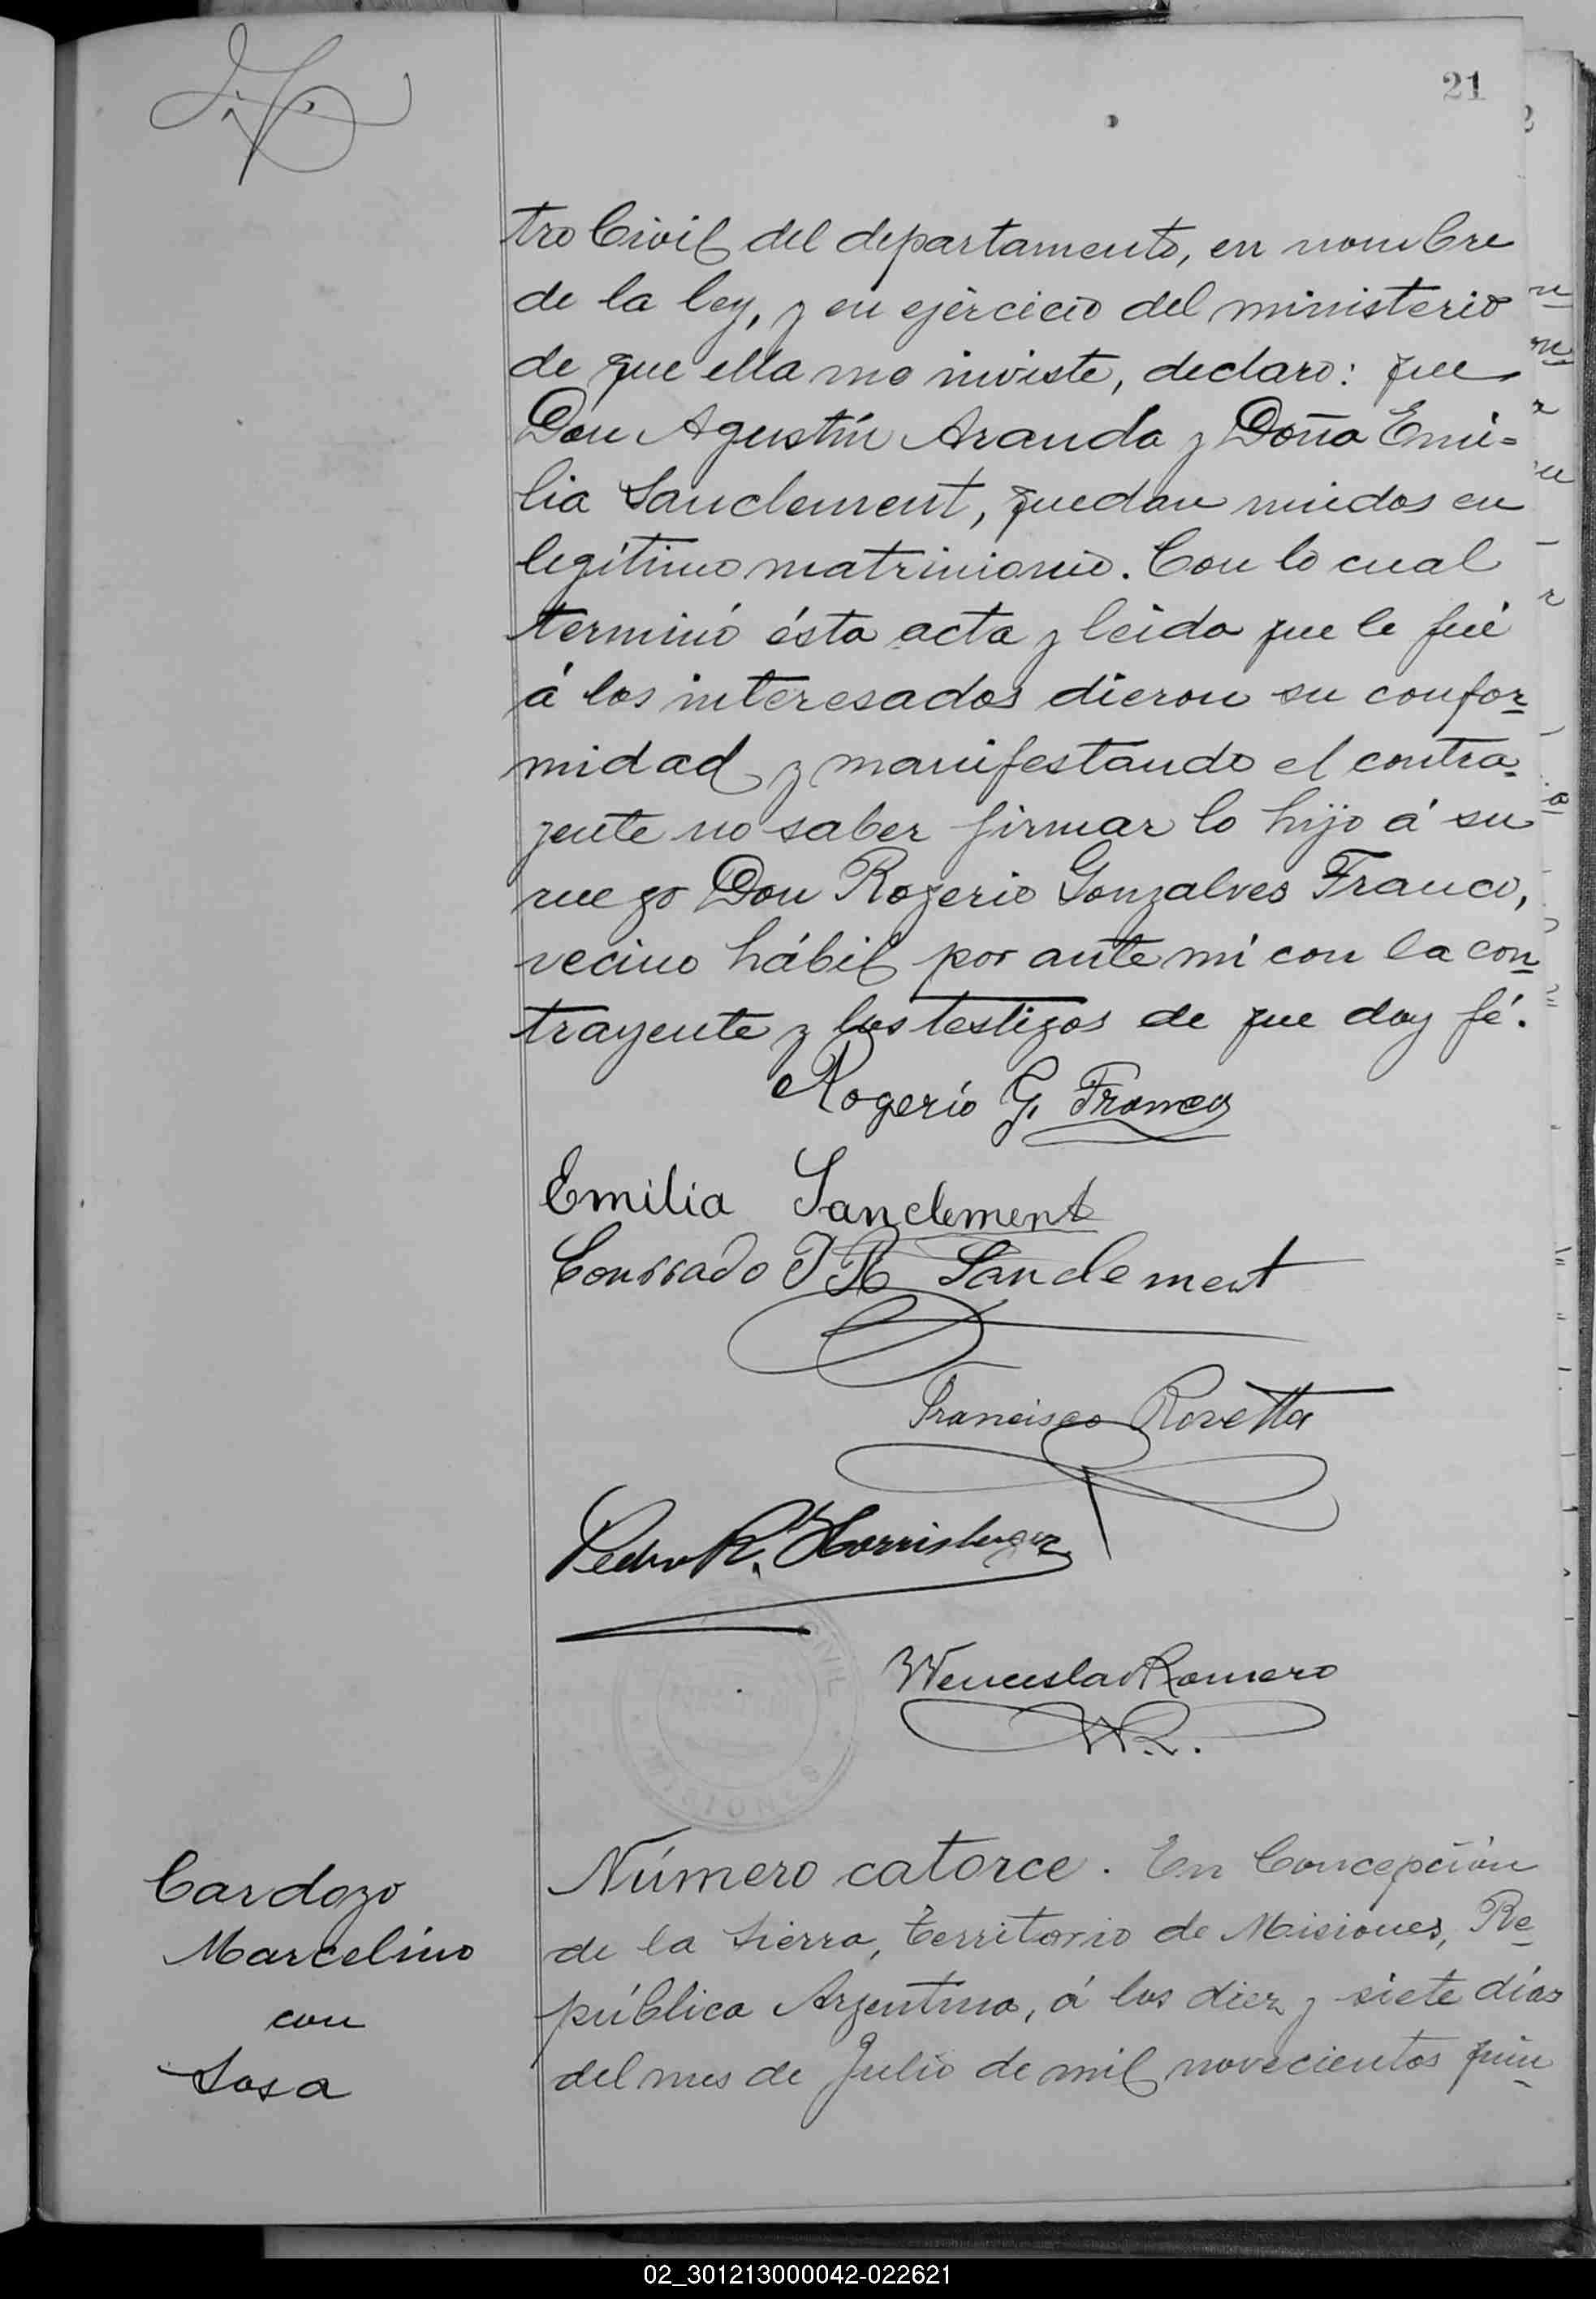 21
tro Civil del departamento, en nombre
de la ley, y en ejercicio del ministerio
de que ella me inviste, declaro: que
Don Agustín Aranda y Doña Emi=
lia Sanclement, quedan unidos en
legítimo matrimonio. Con lo cual
terminó ésta acta y leida que le fué
á los interesados dieron su confor-
midad y manifestando el contra-
yente no saber firmar lo hijo á su
ruego Don Rogerio Gonzalves Franco,
vecino hábil por ante mí con la con-
trayente y los testigos de que doy fé.
Rogerio G. Franco
Emilia Sanclement
Conrrado J R Sanclement
Francisco Rovetta
Pedro R. Horrisberger
Wenceslao Romero
W.R.
CIVIL
MISIONES
Cardozo
Marcelino
con
Sosa
Número catorce. En Concepción
de la Sierra, territorio de Misiones, Re-
pública Argentina, á los diez y siete días
del mes de Julio de mil novecientos quin-
02_301213000042-022621